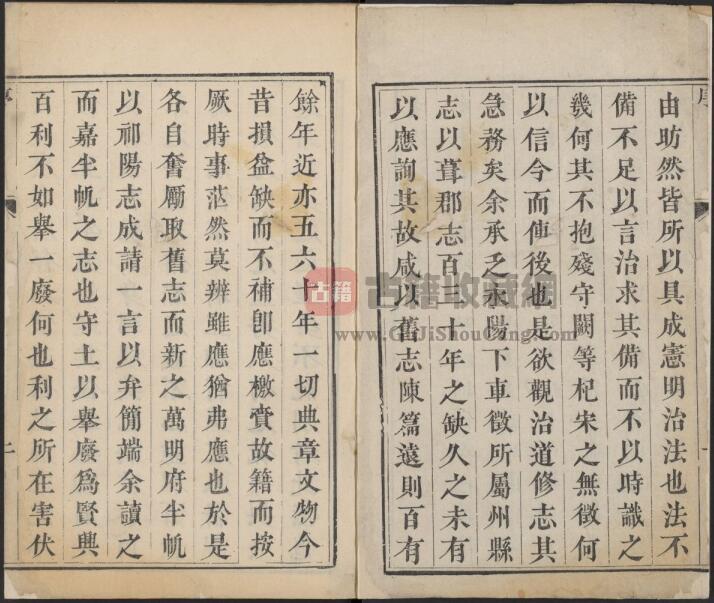 序
由昉然皆所以具成憲明治法也法不
備不足以言治求其備而不以時識之
幾何其不抱殘守闕等杞宋之無徵何
以信今而傳後也是欲觀治道修志其
急務矣余承乏永陽下車徵所屬州縣
志以葺郡志百三十年之缺久之未有
以應詢其故咸以舊志陳篇遠則百有
一
餘年近亦五六十年一切典章文物今
昔損益缺而不補卽應檄賫故籍而按
厥時事茫然莫辨雖應猶弗應也於是
各自奮厲取舊志而新之萬明府半帆
以祁陽志成請一言以弁簡端余讀之
而嘉半帆之志也守土以舉廢爲賢興
百利不如舉一廢何也利之所在害伏
序
古籍
古籍收藏網
www.GuJiShouCang.com